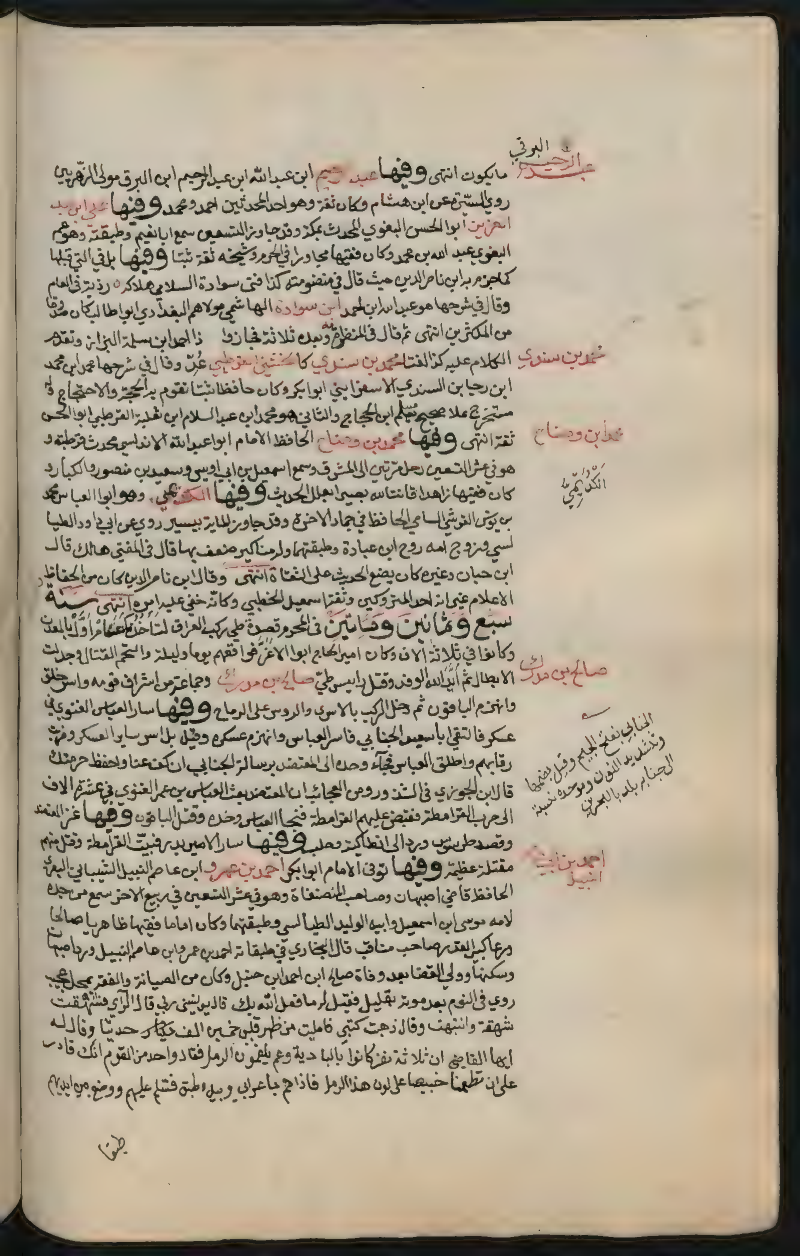 ما يكون انتهى وفيها عبد الرحيم ابن عبد الله ابن عبد الرحيم ابن البرقي مولى الزهريين
روى السيرة عن ابن هشام وكان ثقة وهو احد المحدثين احمد ومحمد وفيها علي ابن عبد
العزيز ابوا الحسن البغوي المحدث بمكة وقد جاوز التسعين سمع ابا نعيم وطبقته وهو عم
البغوي عبد الله بن محمد وكان فقيها مجاورا في الحرم وشيخه ثقة ثبتا وفيها بل في التي قبلها
كما جزم به ابن ناصر الدين حيث قال في منظومته كذا فتى سوادة السلامي هلاكه رزية في العام
وقال في شرحها هو عبد الله ابن احمد ابن سوادة الهاشمي مولاهم البغدادي ابوا طالب كان صدوقا
من المكثرين انتهى ثم قال في المنظومة وبعده ثلاثة فجازوا ذا احمد ابن سلمة البزاز وتقدم
الكلام عليه كذا الفتا محمد بن سندي كالخشني القرطبي عُدِّ وقال في شرحها محمد ابن محمد
ابن رجا بن السندي الاسفرايني ابوا بكر وكان حافظا ثبتا تقوم به الحجة والاحتجاج وله
مستخرج علا صحيح مسلم ابن الحجاج والثاني هو محمد ابن عبد السلام ابن ثعلبة القرطبي ابوا الحسن
ثقة انتهى وفيها محمد بن وضاح الحافظ الامام ابوا عبد الله الاندلسي محدث قرطبة و
هو في عشر التسعين رحل مرتين الى المشرق وسمع اسمعيل بن ابي اويس وسعيد بن منصور والكبار و
كان فقيها زاهدا قانتا لله بصيرا بعلل الحديث وفيها الكديمي وهو ابوا العباس محمد
بن يونس القرشي السامي الحافظ في جماد الاخرة وقد جاوز الماية بيسير روى عن ابي داود الطيا
لسي وزوج امه روح ابن عبادة وطبقتهما وله مناكير ضعف بها قال في المغني هالك قال
ابن حبان وغيره كان يضع الحديث على الثقاة انتهى وقال ابن ناصر الدين كان من الحفاظ
الاعلام غير انه احد المتروكين وثقه اسمعيل الخطبي وكانه خفي عليه امره انتهى سنة
سبع وثمانين ومائتين في المحرم قصدة طي ركب العراق لتأخذه كعام اول بالمعدن
وكانوا في ثلاثة الاف وكان امير الحاج ابوا الاغر فواقعهم يوما وليلة والتحم القتال وجدلت
الابطال ثم ايد الله الوفد وقتل رايس طي صالح بن مدرك وجماعة من اشراف قومه واسر خلق
وانهزم الباقون ثم دخل الركب بالاسرى والروس على الرماح وفيها سار العباس الغنوي في
عسكر فالتقى ابا سعيد الجنابي فاسر العباس وانهزم عسكره وقيل بل اسر ساير العسكر وضربت
رقابهم واطلق العباس فجآء وحده الى المعتضد برسالة الجنابي ان كف عنا واحفظ حرمتك
قال ابن الجوزي في الشذور ومن العجائب ان المعتضد بعث العباس بن عمر الغنوي في عشرة الاف
الى حرب القرامطة فقبض عليهم القرامطة فنجا العباس وحده وقتل الباقون وفيها غز المعتضد
وقصد طرسوس ورد الى انطاكية وحلب وفيها سار الامير بدر فبيت القرامطة وقتل منهم
مقتلة عظيمة وفيها توفي الامام ابوا بكر احمد بن عمرو ابن عاصم النبيل الشيباني البصري
الحافظ قاضي اصبهان وصاحب المصنفات وهو في عشر التسعين في ربيع الاخر سمع من جده
لامه موسى ابن اسمعيل وابي الوليد الطيالسي وطبقتهما وكان اماما فقيها ظاهريا صالحا
ورعا كبير القدر صاحب مناقب قال البخاري في طبقاته احمد بن عمرو ابن عاصم النبيل ورد اصبهان
وسكنها وولي القضا بعد وفاة صالح ابن احمد ابن حنبل وكان من الصيانة والفقه بمحل عجيب
روي في النوم بعد موته بقليل فقيل له ما فعل الله بك قال يونسني ربي قال الرآي فشهقت
شهقة وانتبهت وقال ذهبت كتبي فامليت من ظهر قلبي خمسين الف حديثا وقال له
ايها القاضي ان ثلاثة نفر كانوا بالبادية وهم يلعبون الرمل فقال واحد من القوم انك قادر
على ان تطعمنا خبيصا على لون هذا الرمل فاذا هم باعرابي وبيده طبق فسلم عليهم ووضع بين ايديهم
طبقا
البرقي
عبد الرحيم
محمد بن سندي
محمد ابن وضاح
الكُدَيْمي
صالح بن مدرك
الجنابي بفتح الجيم وقيل بضمها
وتشديد النون وموحده نسبة
الى جنابه بلد بالبحرين
احمد بن
النبيل